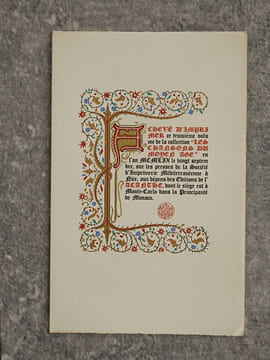 ACHEVÉ D'IMPRI
MER ce troisième volu
me de la collection "LES
CHANSONS DU
MOYEN AGE" en
l'an MCMLIX le vingt septem
bre, sur les presses de la Société
d'Imprimerie Méditerranéenne à
Nice, aux dépens des Editions de l'
ACANTHE, dont le siège est à
Monte-Carlo dans la Principauté
de Monaco.